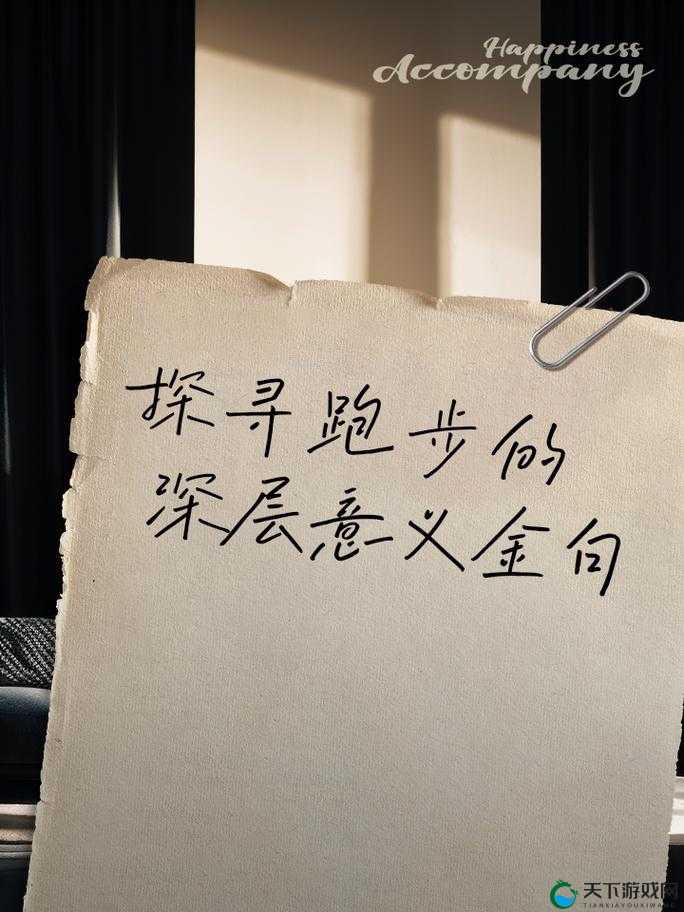 Happiness
Accompany
探寻跑步的
深层意义金句
天下游戏网
TIANXIAYOUXIWANG